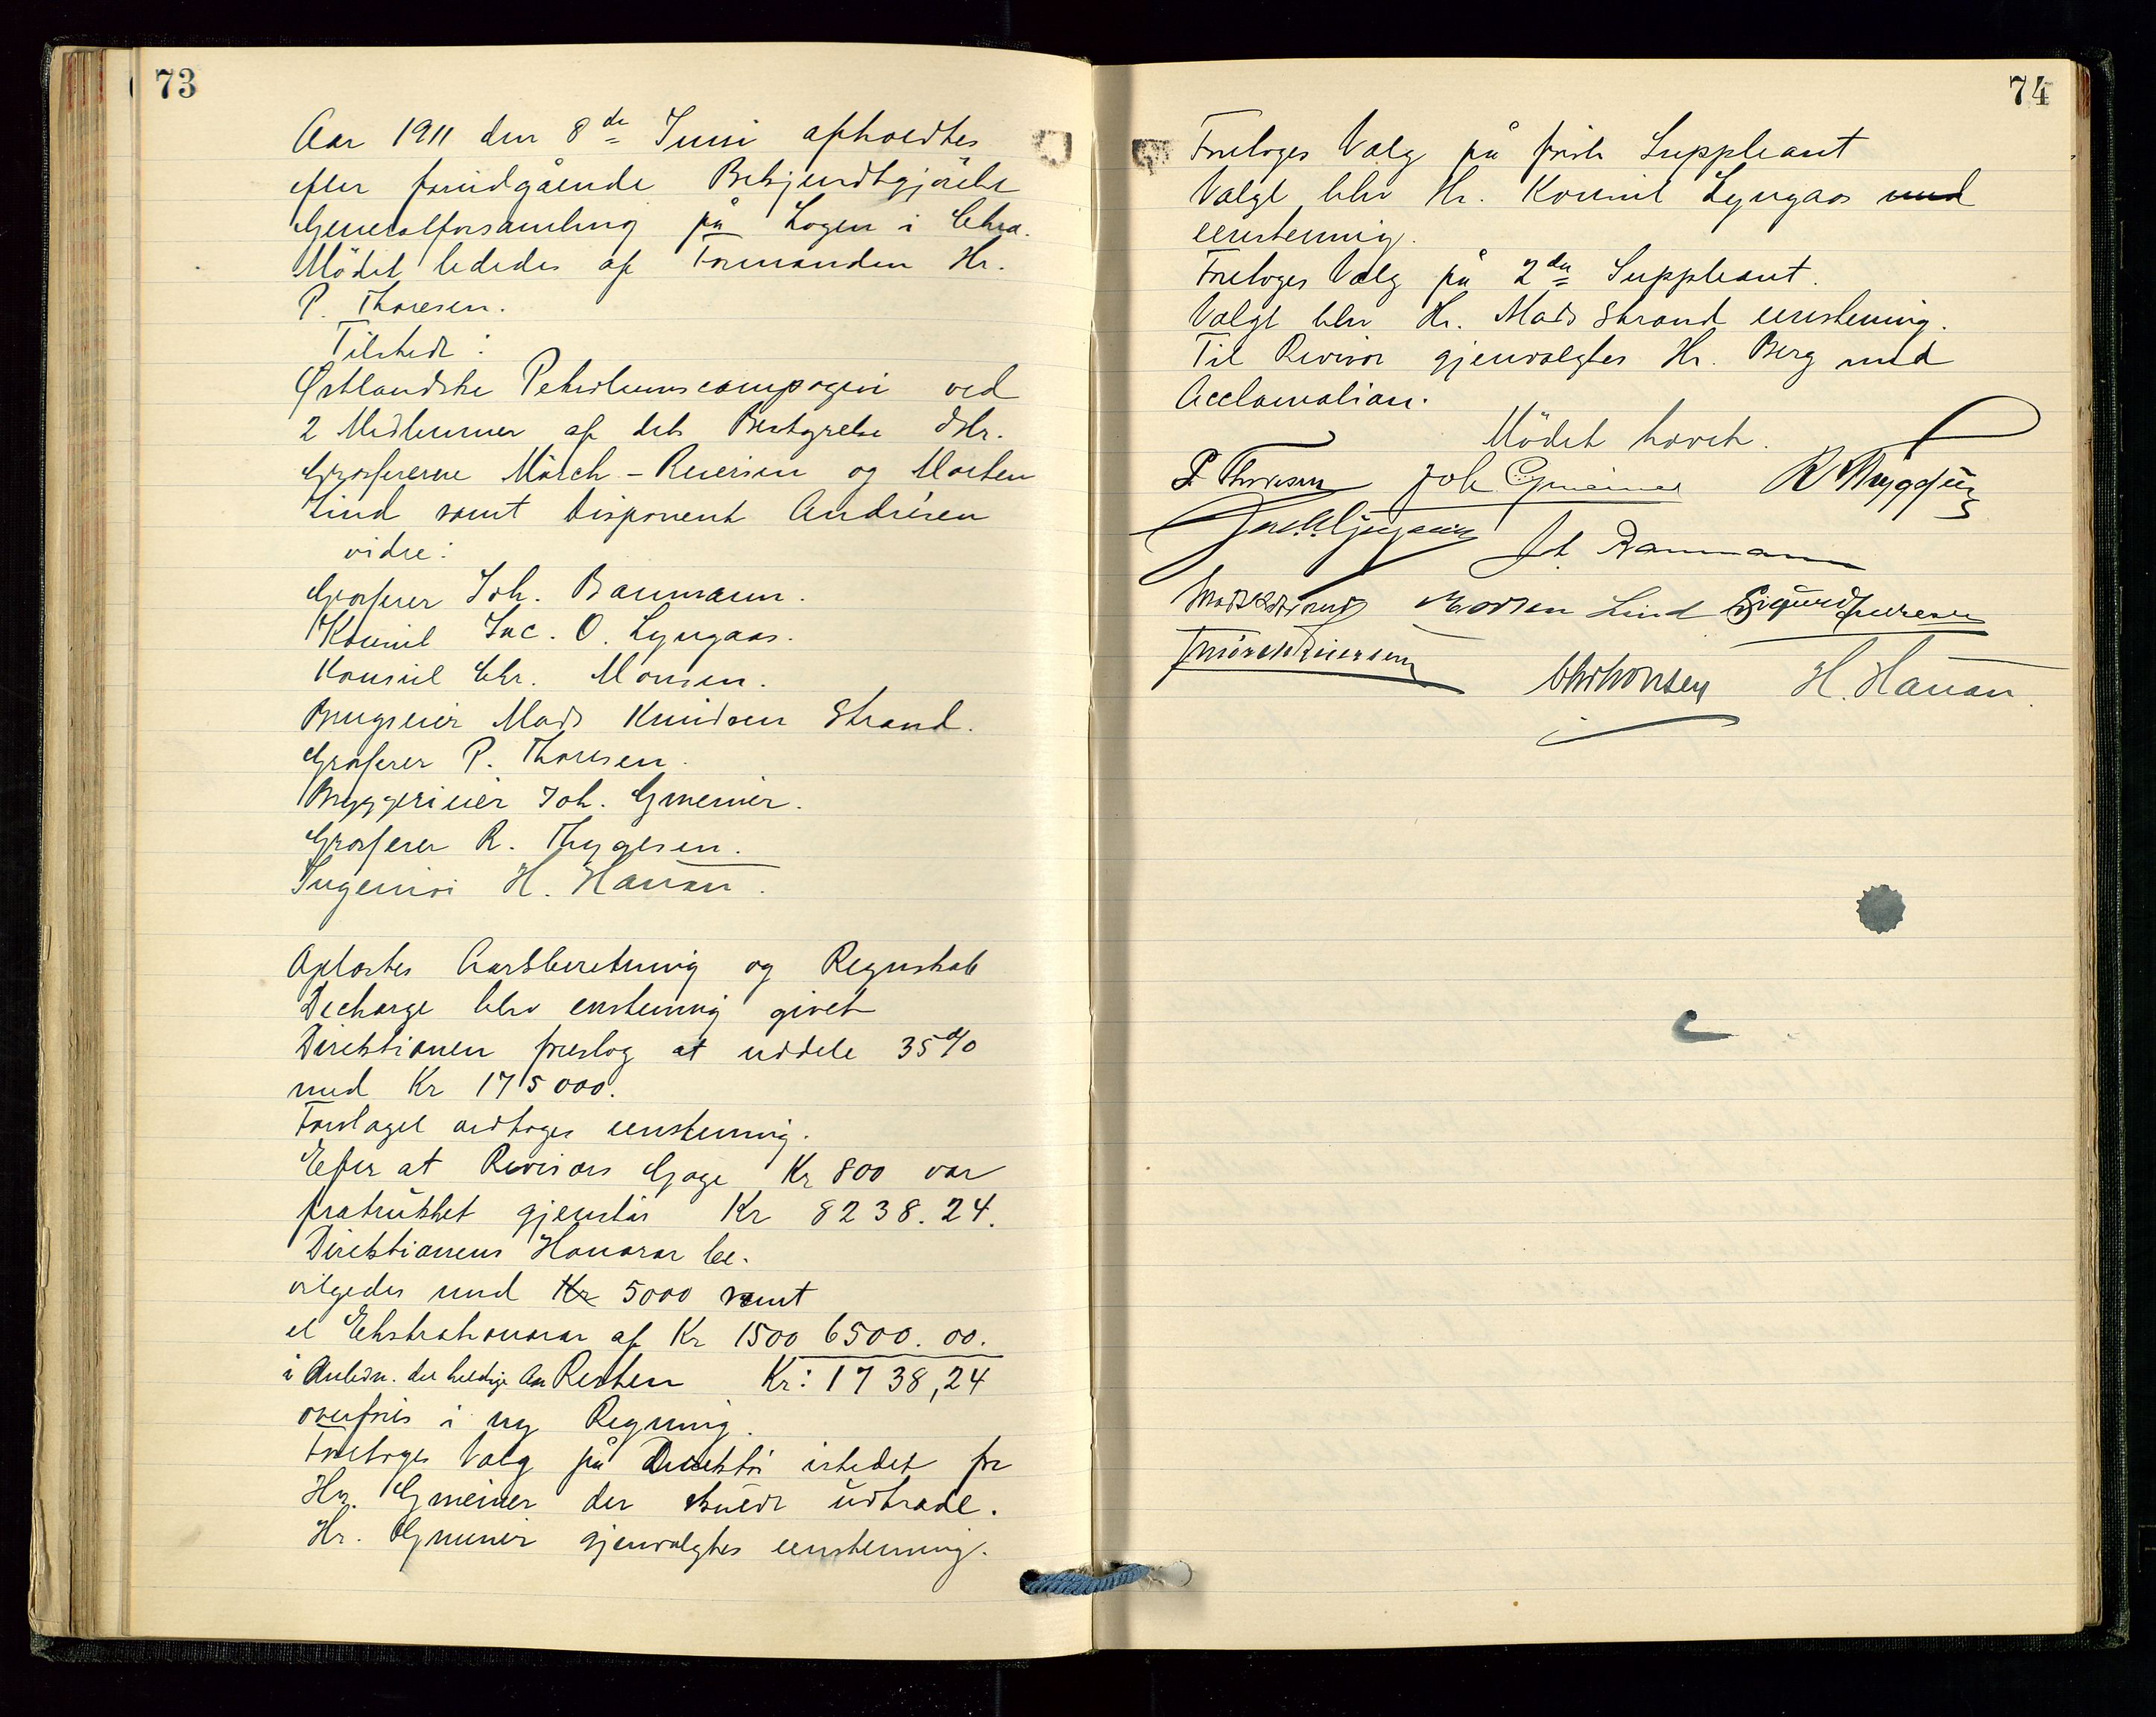 73
Aar 1911 den 8de Juni afholdtes
efter forudgående Bekjendtgjörelse
Generalforsamling på Logen i Chra.
Mödet lededes af Formanden Hr.
P. Thoresen.
Tilstede:
Østlandske Petroleumscompagni ved
2 Medlemmer af dets Bestyrelse dHr.
Grosfererne Mörch-Reiersen og Morten
Lind samt Disponent Andresen
vidre:
Grosserer Joh. Baumann.
Konsul Jac. O. Lyngaas.
Konsul Chr. Monsen.
Brugseier Mads Knudsen Strand.
Grosferer P. Thoresen.
Bryggerieier Joh. Gmeiner.
Grosferer R. Thygesen.
Ingeniör H. Hanan.
Oplæstes Aarsberetning og Regnskab
Decharge blev enstemmig givet
Direktionen foreslog at uddele 35 %
med Kr 175000.
Forslaget vedtoges eenstemmig.
Efter at Revisors Gage Kr 800 var
fratrukket gjenstår Kr 8238.24.
Direktionens Honorar be-
vilgedes med Kr 5000 samt
et Ekstrahonorar af Kr 1500 6500.00.
i Anledn. det heldige Aar Resten Kr: 1738,24
overföres i ny Regning.
Foretoges Valg på Direktör istedet for
Hr. Gmeiner der skulde udtræde.
Hr. Gmeiner gjenvalgtes eenstemmig.
74
Foretoges Valg på förste Suppleant
Valgt blev Hr. Konsul Lyngaas med
eenstemmig.
Foretoges Valg på 2den Suppleant.
Valgt blev Hr. Mads Strand eenstemmig.
Til Revisor gjenvalgtes Hr. Berg med
Acclamation.
Mödet hævet.
P. Thoresen Joh Gmeiner R Thygesen
Jac. O. Lyngaas Joh. Baumann
Mads K Strand Morten Lind Sigurd
Mörch Reiersen
Chr Monsen H. Hanan